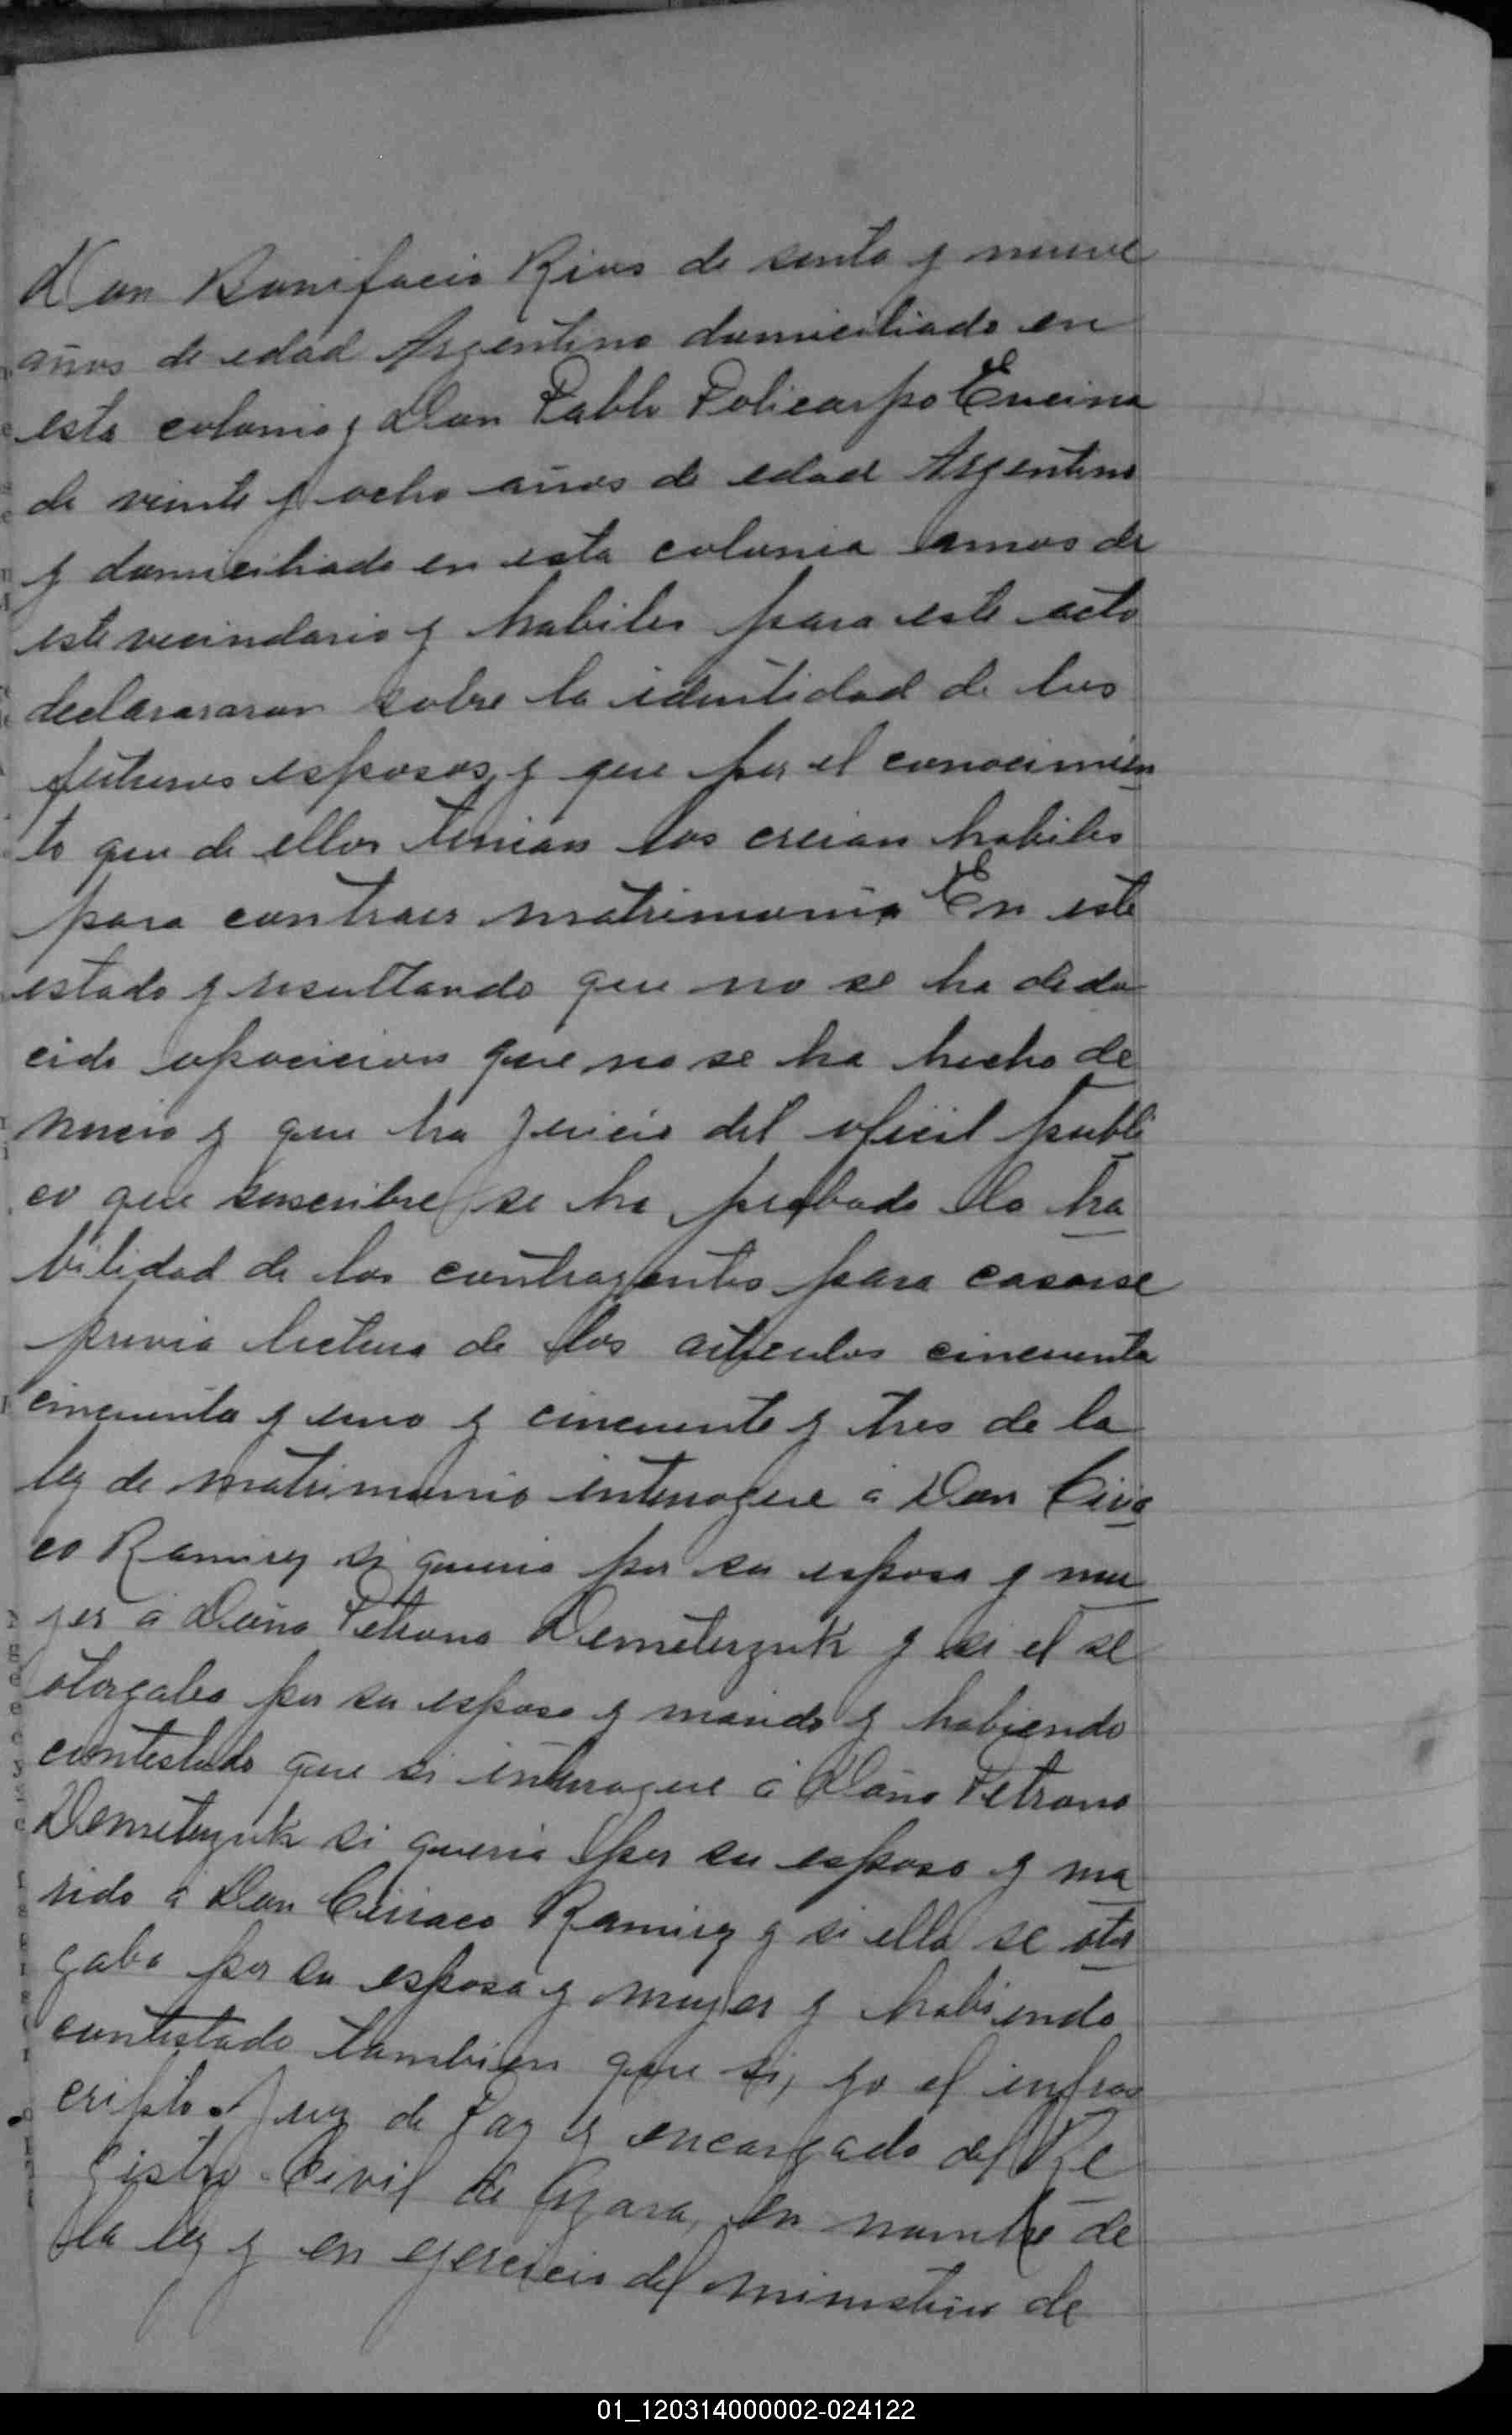 Don Bonifacio Rios de senta y nueve
años de edad Argentino domiciliado en
esta colonia y Don Pablo Policarpo Encina
de veinte y ocho años de edad Argentino
y domiciliado en esta colonia amos de
este vecindario y habiles para este acto
declarararon sobre la identidad de los
futuros esposos, y que por el conocimien
to que de ellos tenian los creian habiles
para contraer matrimonio En este
estado y resultando que no se ha dedu
cido oposicion que no se ha hecho de
nuncio y que ha juicio del oficil publi
co que suscribe se ha probado la ha
bilidad de los contrayentes para casarse
previa lectura de los articulos cincuenta
cincuenta y uno y cincuenta y tres de la
ley de matrimonio interrogue á Don Ciria
co Ramirez si queria por su esposa y mu
jer á Doña Petrona Demeterzuk y si el se
otorgaba por su esposo y marido y habiendo
contestado que si interrogue á Doña Petrona
Demeterzuk si queria por su esposo y ma
rido á Don Ciriaco Ramirez y si ella se otor
gaba por su esposa y mujer y habiendo
contestado tambien que si, yo el infras
cripto Juez de Paz y encargado del Re
gistro Civil de Azara, en nombre de
la ley y en ejercicio del ministerio de
01_120314000002-024122